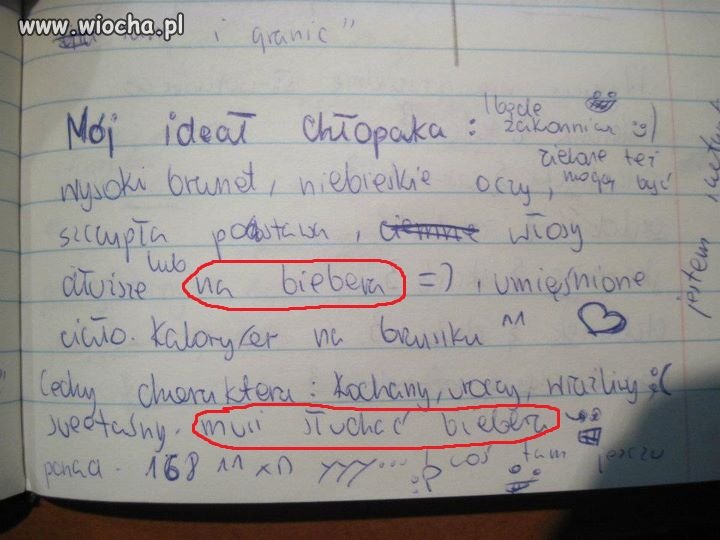 www.wiocha.pl
i granic"
Mój ideał chłopaka :
będę
zakonnica :)
zielone też
mogą być
wysoki brunet, niebieskie oczy,
szczupła postawa, ciemne włosy
dłuższe lub na biebera =), umięśnione
ciało. Kaloryfer na brzuszku ^^
Cechy charakteru : Kochany, uroczy, wrażliwy :(
sweetaśny. musi słuchać biebera
ponad 168 ^^ xD yyy... :p coś tam jeszcze
jestem